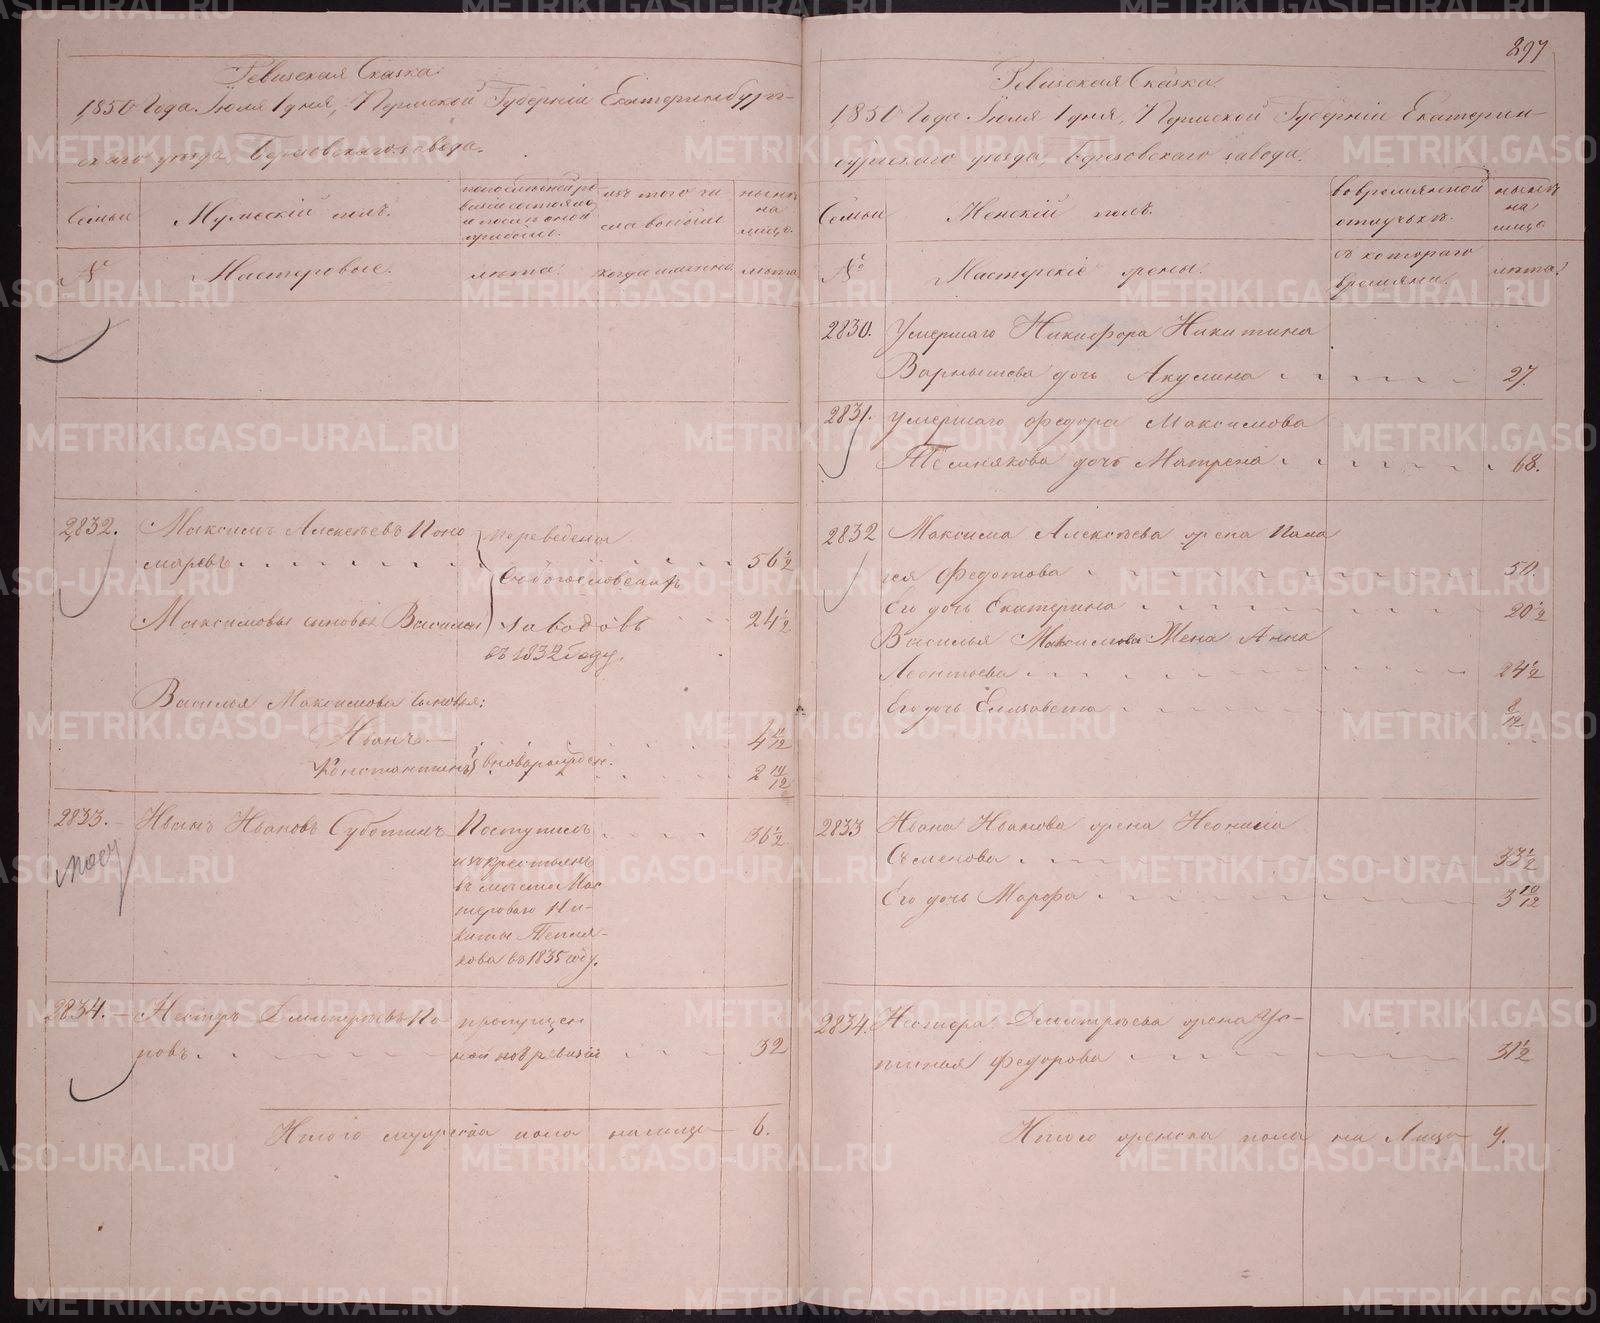 Ревизская Сказка.
1,850 Года. Iюля 1 дня, Пермской Губернiи Екатеринбург-
скаго уезда, Березовскаго завода.
Семьи
Мужескiй полъ.
по последней ре-
визiи состояло
и после оной
прибыло.
изъ того чи
сла выбыло
ныне
на
лицо.
№
Мастеровые.
лета.
когда именно.
лета
2,832.
Максимъ Алексеевъ Поно
маревъ
переведены
съ Богословскихъ
заводовъ
въ 1832 Году.
56 1/2
Максимовы сыновья Василiй
24 1/2
Василья Максимова сыновья:
Иванъ
4 11/12
Константинъ
вновь рожден.
2 11/12
2833.
Иванъ Ивановъ Суботинъ
Поступилъ
изъ крестьянъ
въ место Мас
тероваго Ни-
киты Тепля-
кова въ 1835 году.
36 1/2
2834.
Нестеръ Дмитрiевъ По-
повъ
пропущен
ной по 8 ревизiи
32
Итого мужеска пола на лицо 6.
297
Ревизская Сказка.
1,850 Года. Iюля 1 дня, Пермской Губернiи Екатерин-
бургскаго уезда, Березовскаго завода.
Семьи
Женскiй полъ.
во временной
отлучке.
ныне
на
лицо
№
Мастерскiе жены.
съ котораго
времени.
лета.
2830.
Умершаго Никифора Никитина
Варнышева дочь Акулина
27.
2831.
Умершаго Федора Максимова
Темнякова дочь Матрена
68.
2832
Максима Алексеева жена Пала
гея Федотова
50.
Его дочь Екатерина
20 1/2
Василья Максимова Жена Анна
Леонтьева
24 1/2
Его дочь Елизавета
8/12
2833
Ивана Иванова жена Неонила
Семенова
33 1/2
Его дочь Марфа
3 10/12
2834.
Нестора Дмитрiева жена Ус-
тинья Федорова
31 1/2
Итого женска пола на Лицо 9.